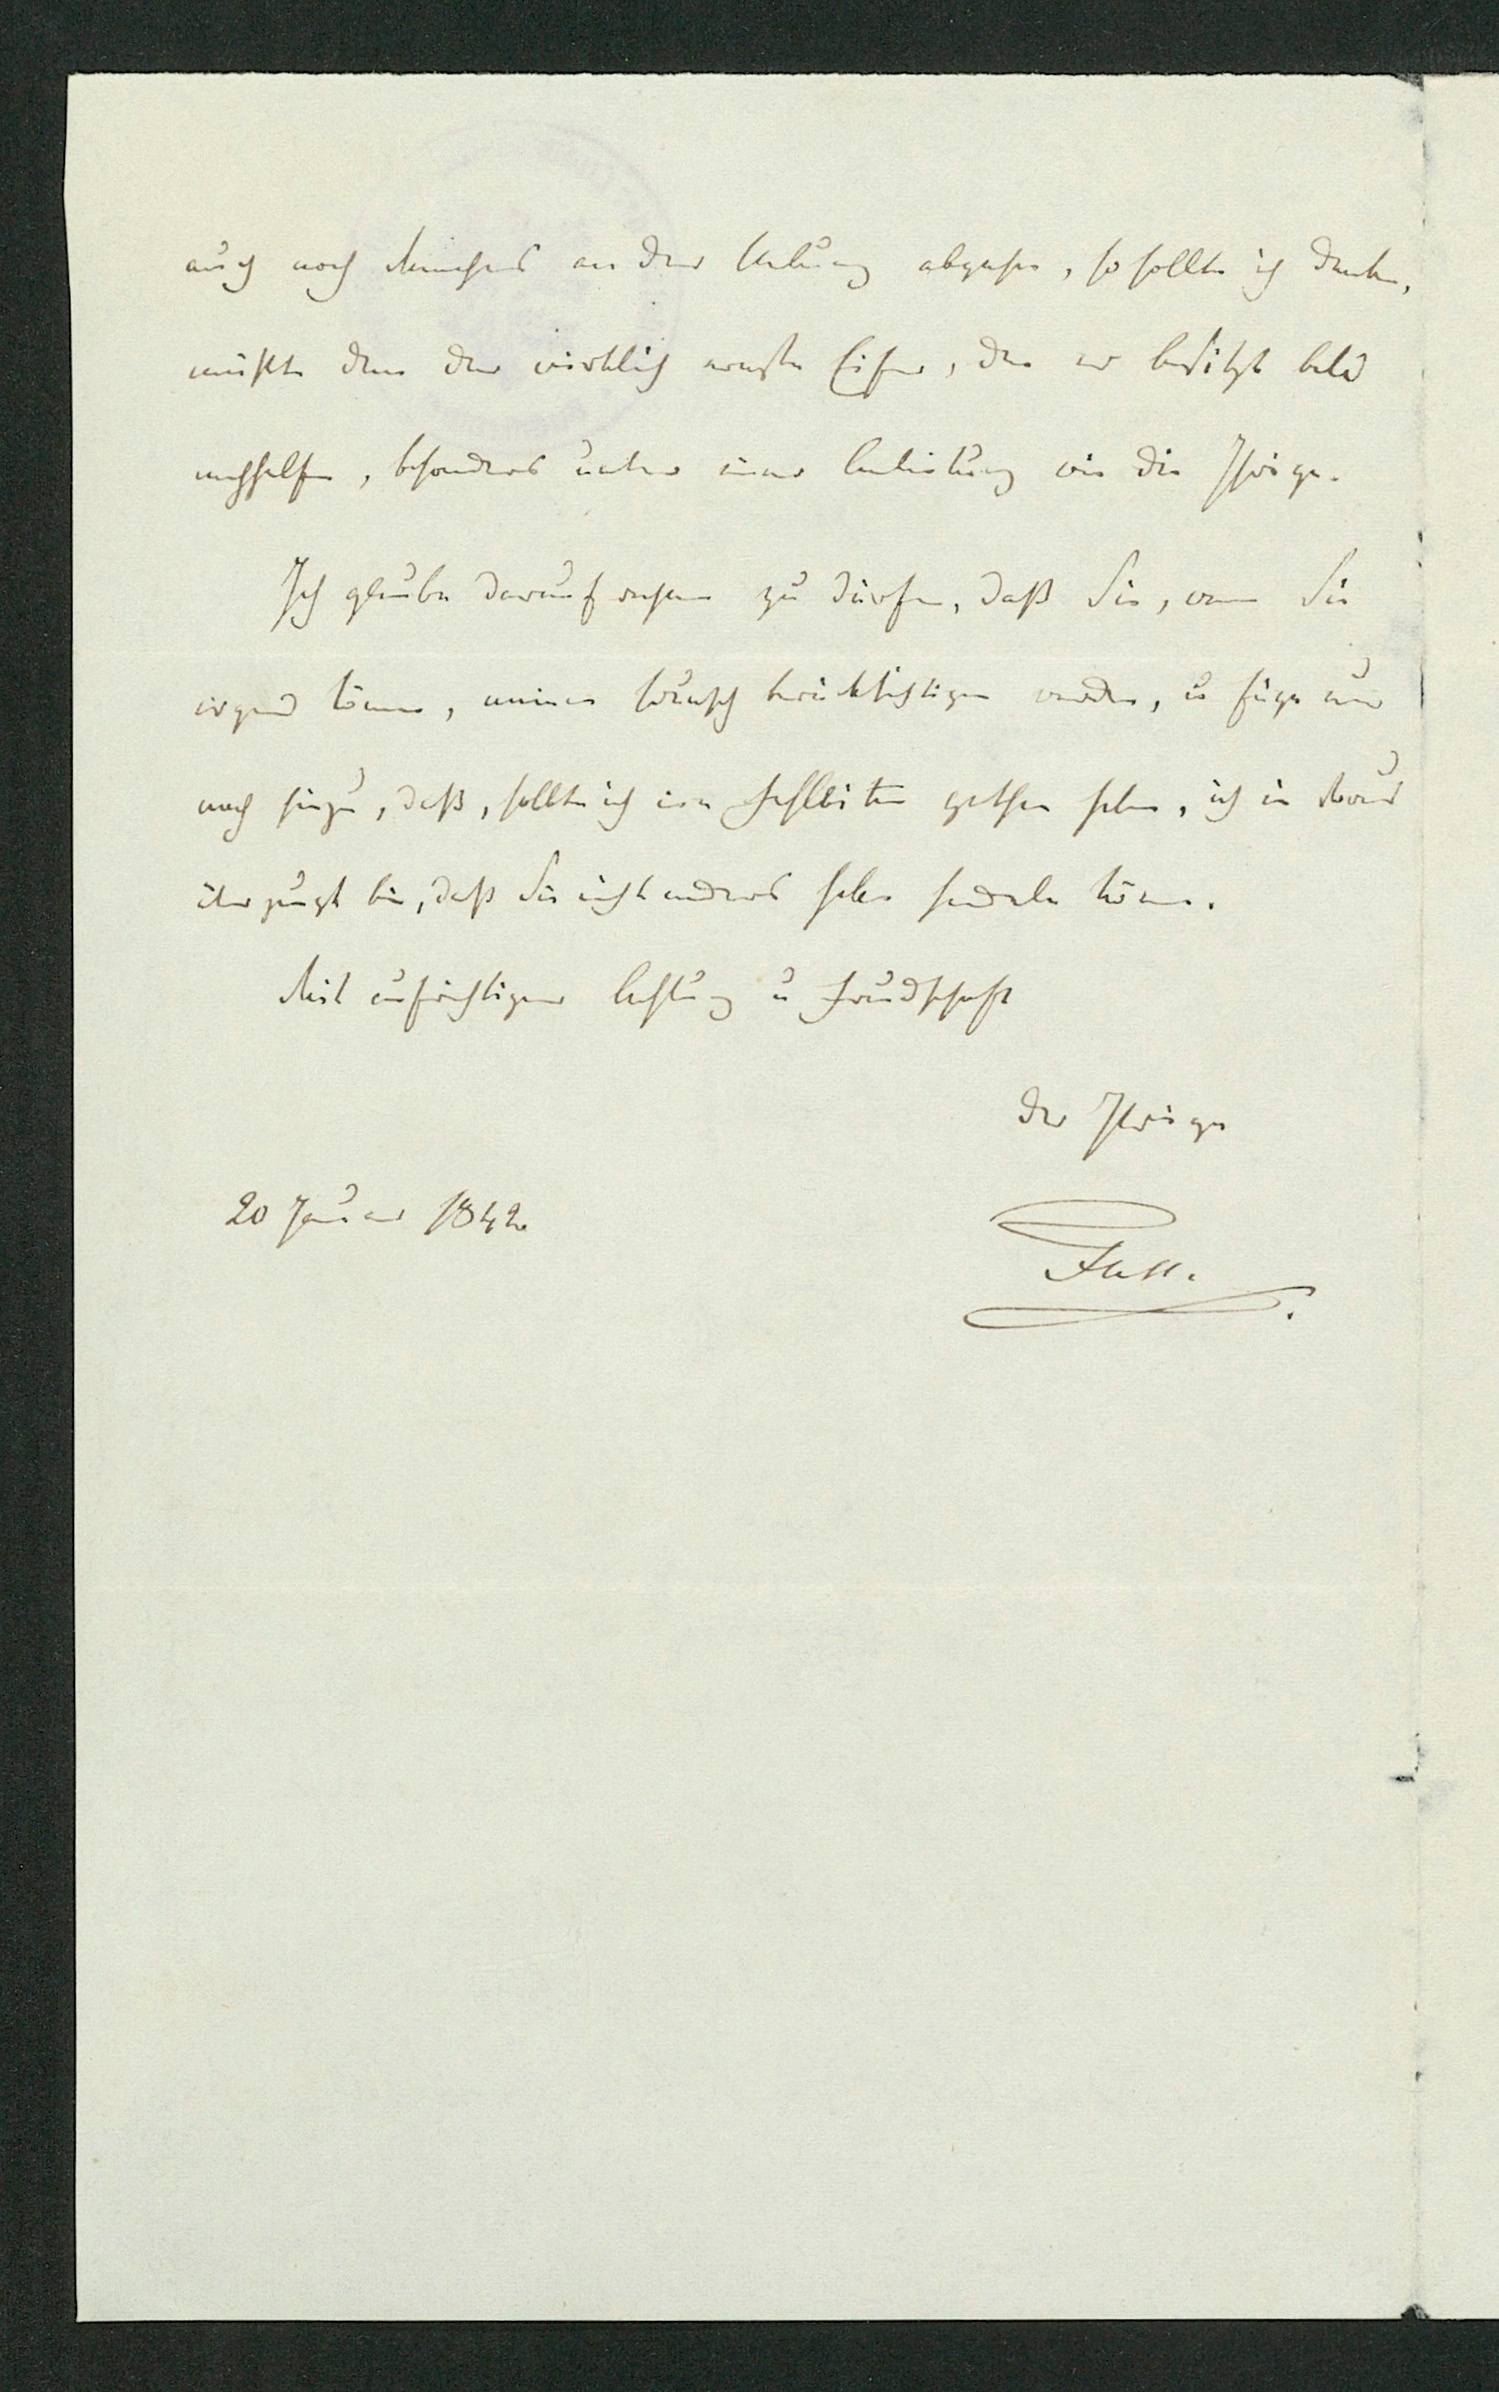 auch noch Manches an der Uebung abgehen, so sollte ich denken,
müßte dem der wirklich ernste Eifer, den er besitzt bald
nachhelfen, besonders unter einer Anleitung wie die Ihrige.
Ich glaube darauf rechnen zu dürfen, daß Sie, wenn Sie
irgend können, meinen Wunsch berücksichtigen werden, u füge nur
noch hinzu, daß, sollte ich eine Fehlbitte gethan haben, ich im Voraus
überzeugt bin, daß Sie nicht anders haben handeln können.
Mit aufrichtiger Achtung u Freundschaft
der Ihrige
20 Januar 1842